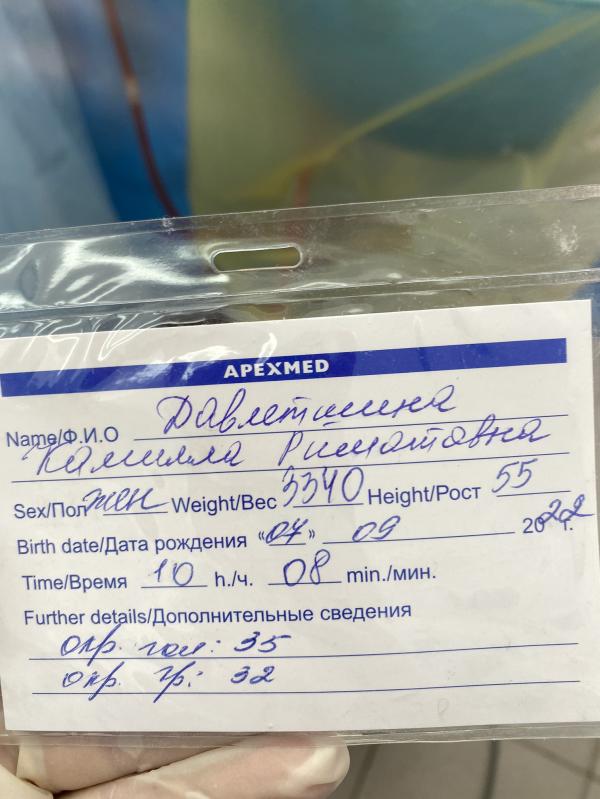 APEXMED
Name/Ф.И.О Давлетшина
Камилла Риматовна
Sex/Пол жен Weight/Вес 3340 Height/Рост 55
Birth date/Дата рождения «07» 09 2022г.
Time/Время 10 h./ч. 08 min./мин.
Further details/Дополнительные сведения
окр. гол: 35
окр. гр: 32